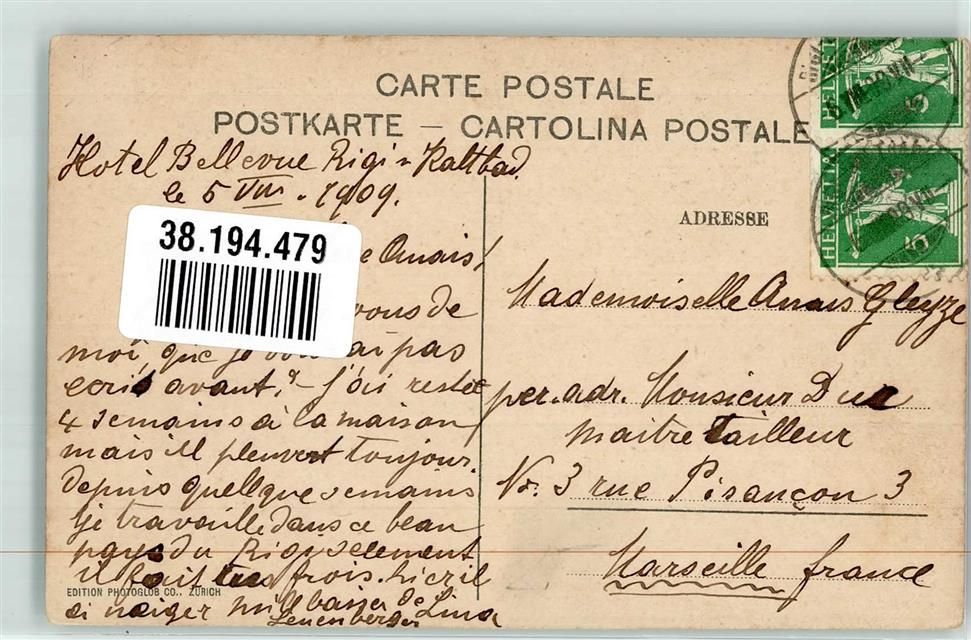 CARTE POSTALE
POSTKARTE – CARTOLINA POSTALE
Hotel Bellevue Rigi-Kaltbad.
le 5 VIII. 1909.
38.194.479
Anais!
vous de
moi, que je ai pas
ecris avant. J'ai restée
4 semains à la maison
mais il pleuvert toujour.
Depuis quelque semains
je travaille dans ce beau
pays du Rigi, selement
il fait tres frois. hier il
si neiger mill baiser de Lina
Leuenberger
EDITION PHOTOGLOB CO., ZÜRICH
ADRESSE
Mademoiselle Anais Gleyze
per. adr. Monsieur Duc
maitre tailleur
Nr. 3 rue Pisançon 3
Marseille france
HELVETIA 5
HELVETIA 5